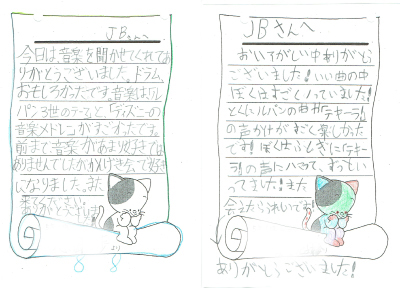 JBさんへ
今日は、音楽を聞かせてくれてあ
りがとうございました。ドラム、
おもしろかったです。音楽は「ル
パン3世のテーマ」と「ディズニーの
音楽メドレー」がすごかったです。
前まで音楽があまり好きでは
ありませんでしたが
になりました。また
来てください。
ありがとうございます
JBさんへ
おいそがしい中ありがとう
ございました!いい曲の中
ぼくはすごくのっていました!
とくにルパンの曲や「テキーラ」
の声かけがすごく楽しかった
です!ぼくは「テキー
ラ」の声にハマって、
ってました!また
会えたらうれしいです!
ありがとうございました!